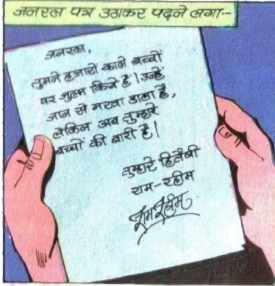 जनरल पत्र उठाकर पढ़ने लगा:-
जनरल,
तुमने हजारों काले बच्चों
पर जुल्म किये हैं। उन्हें
जान से मरवा डाला है,
लेकिन अब तुम्हारे
बच्चों की बारी है।
तुम्हारे हितैषी
राम-रहीम
रामरहीम